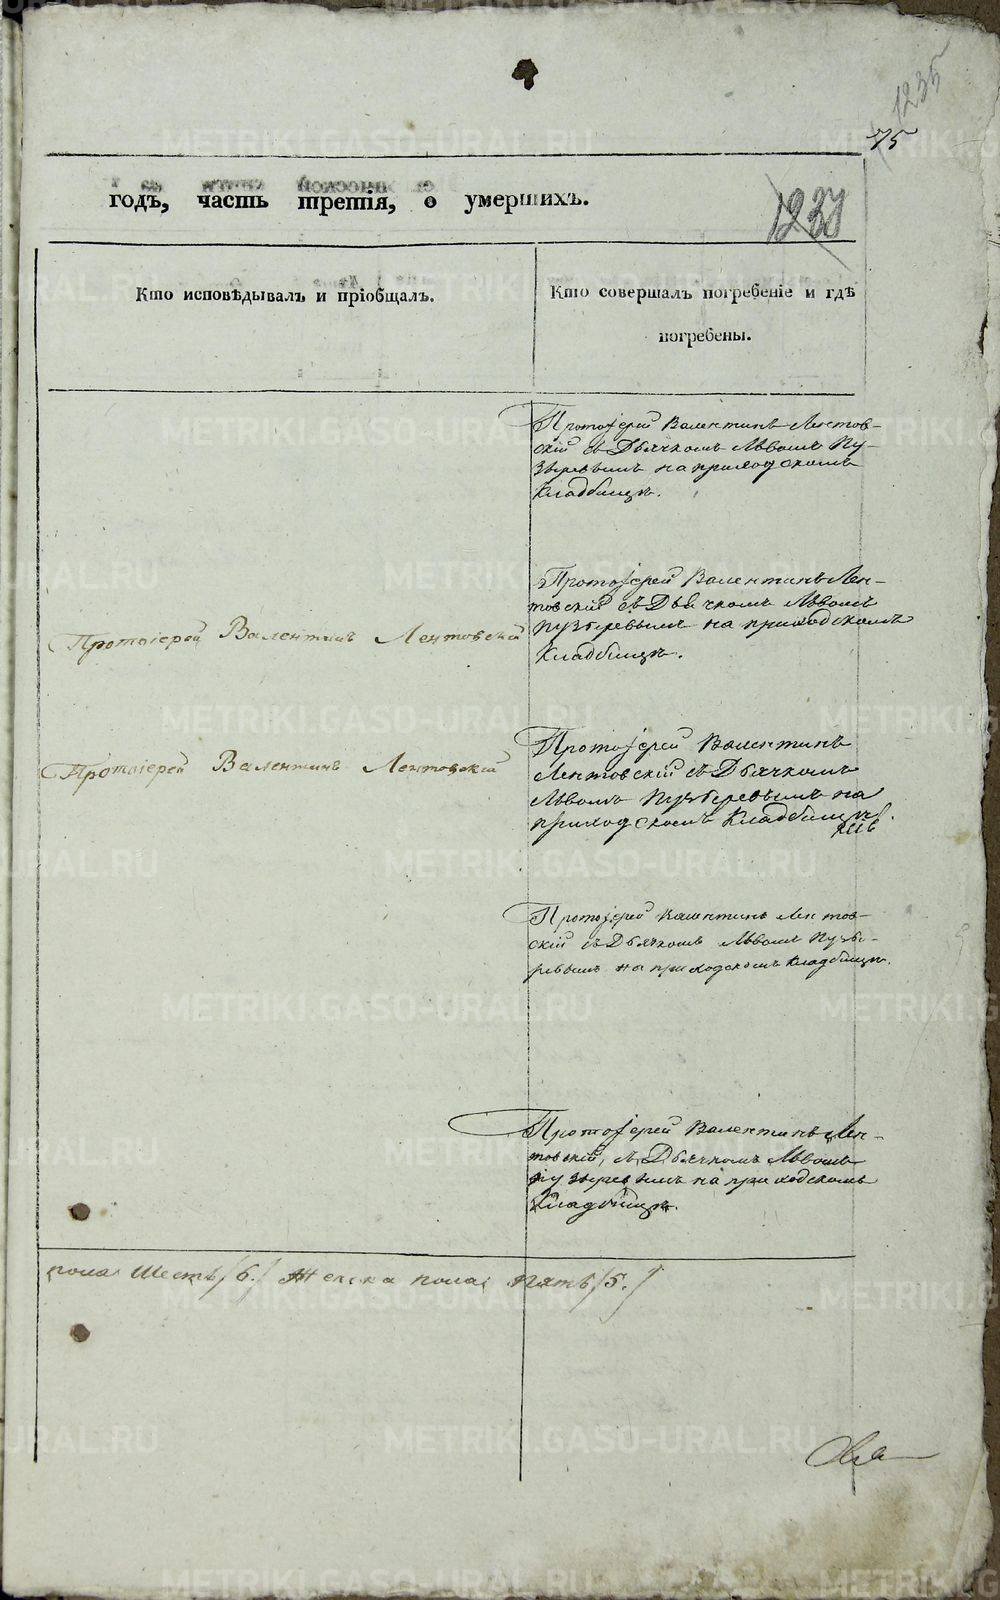 1235
75
годъ, часть третія, о умершихъ.
1237
Кто исповѣдывалъ и пріобщалъ.
Кто совершалъ погребеніе и гдѣ
погребены.
Протоіерей Валентинъ Лентов-
скій съ Дьячкомъ Львомъ Пу-
зыревымъ на приходскомъ
Кладбищѣ.
Протоіерей Валентинъ Лентовскій
Протоіерей Валентинъ Лен-
товскій съ Дьячкомъ Львомъ
Пузыревымъ на приходскомъ
Кладбищѣ.
Протоіерей Валентинъ Лентовскій
Протоіерей Валентинъ
Лентовскій съ Дьячкомъ
Львомъ Пузыревымъ на
приходскомъ Кладбищѣ.
Протоіерей Валентинъ Лентов-
скій съ Дьячкомъ Львомъ Пузы-
ревымъ на приходскомъ Кладбищѣ.
Протоіерей Валентинъ Лен-
товскій, съ Дьячкомъ Львомъ
Пузыревымъ на приходскомъ
Кладбищѣ.
пола Шесть /6./ Женска пола Пять /5./
METRIKI.GASO-URAL.RU